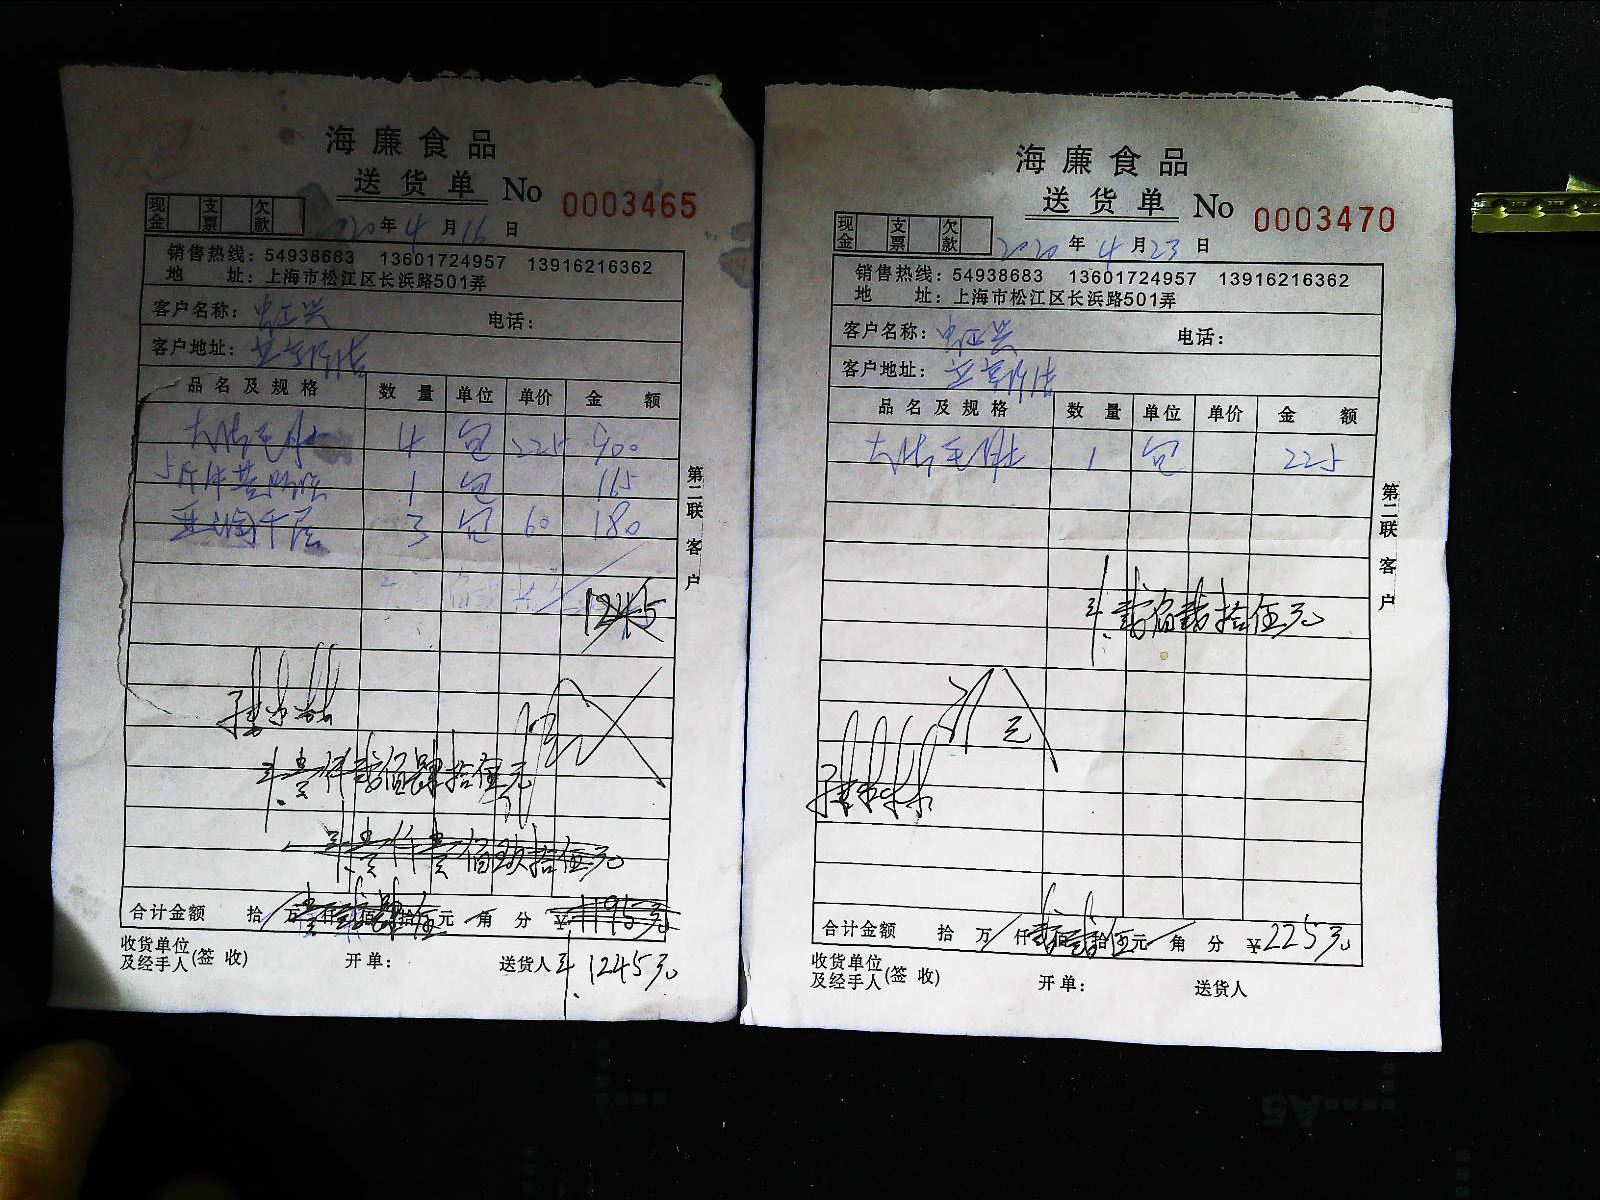 海廉食品
送货单 No 0003465
现金 支票 欠款
2020年4月16日
销售热线：54938683 13601724957 13916216362
地 址：上海市松江区长浜路501弄
客户名称： 电话：
客户地址：
品名及规格 数量 单位 单价 金额
4 包 225 900
1 包 165
千层 3 包 60 180
1245
壹仟贰佰肆拾伍元
壹仟壹佰玖拾伍元
合计金额 拾 万 仟 佰 拾 元 角 分 ¥1195元
收货单位及经手人(签收) 开单： 送货人
1245元
第二联 客户
海廉食品
送货单 No 0003470
现金 支票 欠款
2020年4月23日
销售热线：54938683 13601724957 13916216362
地 址：上海市松江区长浜路501弄
客户名称： 电话：
客户地址：
品名及规格 数量 单位 单价 金额
1 包 225
贰佰贰拾伍元
合计金额 拾 万 仟贰佰贰拾伍元 角 分 ¥225元
收货单位及经手人(签收) 开单： 送货人
第二联 客户